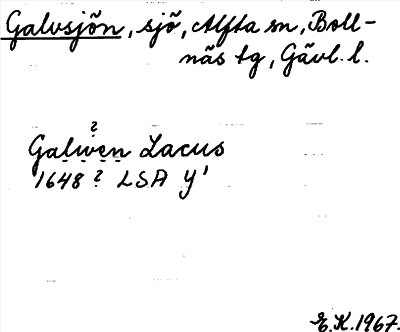 Galvsjön, sjö, Alfta sn, Boll-
näs tg, Gävl. l.
?
Galwen Lacus
1648 ? LSA Y'
E.K. 1967.